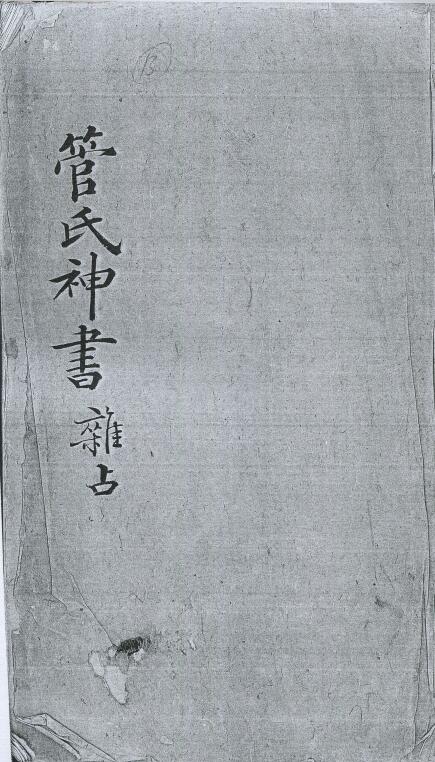 管氏神書
雜占
13